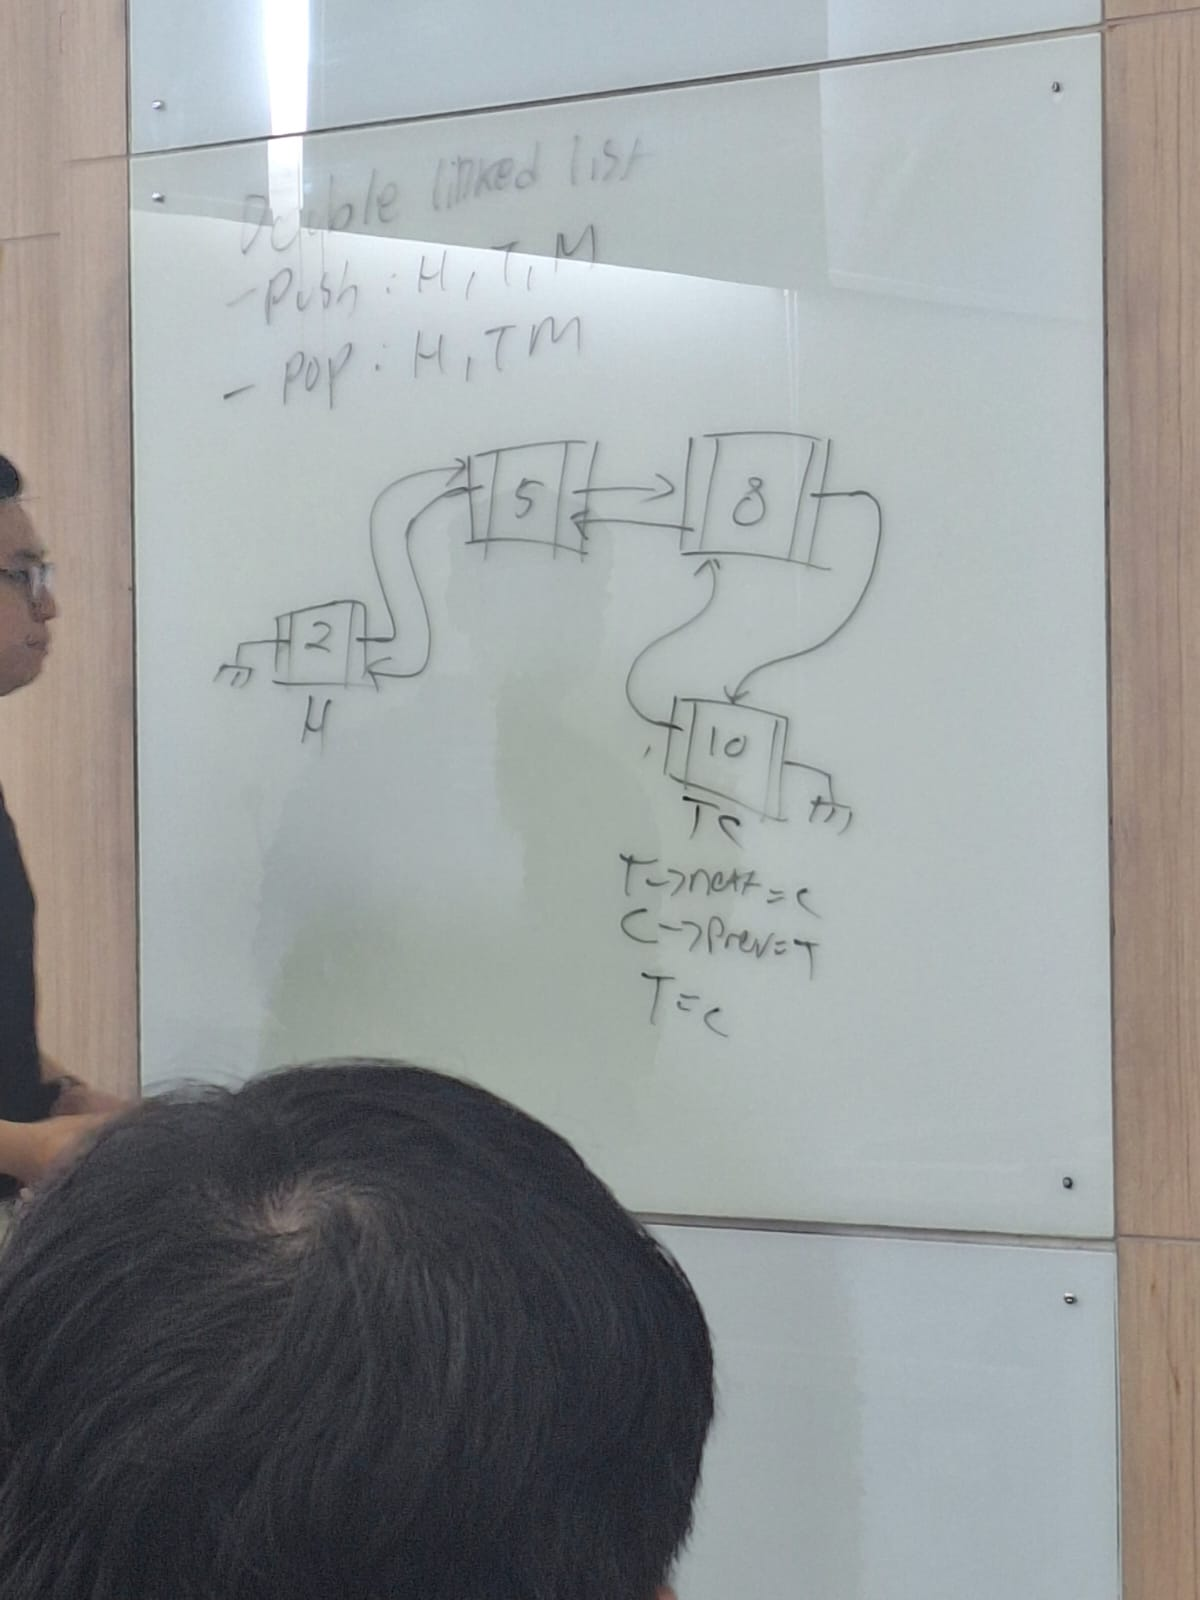 Double linked list
- Push : H, T, M
- Pop : H, T M
5
8
2
H
10
T C
T->next = c
C->Prev = T
T = c